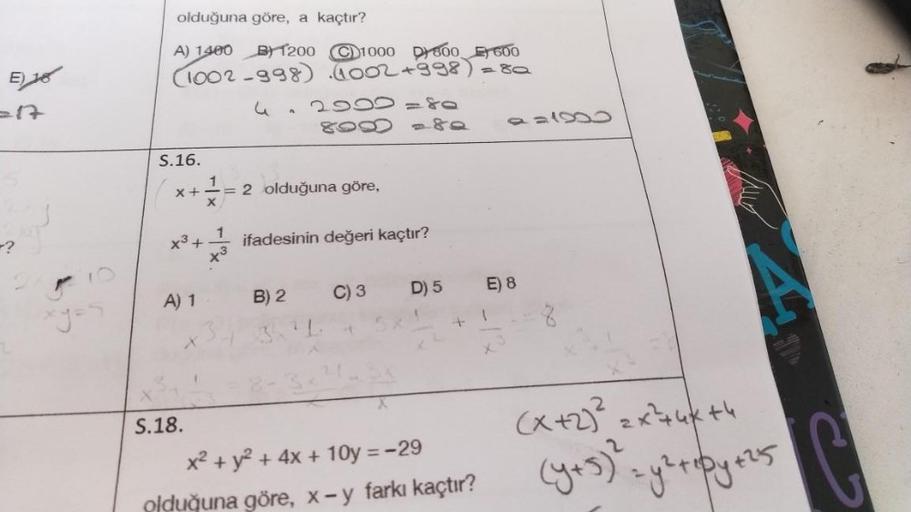 olduğuna göre, a kaçtır?
A) 1400 B) 1200 C) 1000 D) 800 E) 600
(1002-998) . (1002+998) = 8a
4 . 2000 = 8a
8000 = 8a a = 1000
E) 16
= 17
S.16.
x + 1/x = 2 olduğuna göre,
x³ + 1/x³ ifadesinin değeri kaçtır?
A) 1 B) 2 C) 3 D) 5 E) 8
r?
10
xy=5
S.18.
x² + y² + 4x + 10y = -29
olduğuna göre, x - y farkı kaçtır?
(x+2)² = x²+4x+4
(y+5)² = y²+10y+25
A
C